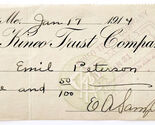 Mo. Jan 17 1914
Kineo Trust Compa
Emil Peterson
e and 50/100
E A Samp